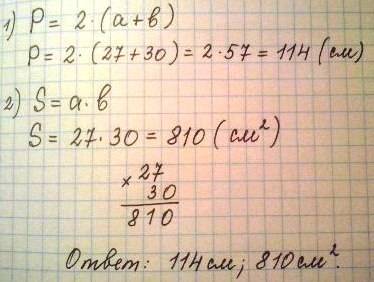 1) P = 2·(a+в)
P = 2·(27+30) = 2·57 = 114 (см)
2) S = a·в
S = 27·30 = 810 (см²)
× 27
30
810
Ответ: 114 см; 810 см².